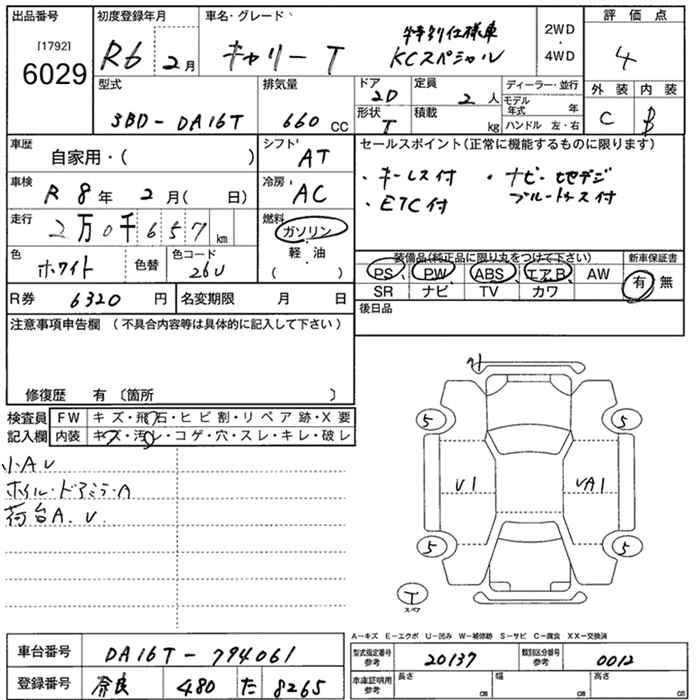 出品番号 初度登録年月 車名・グレード 評価点
[1792]
6029
R6 2月 キャリー T 特別仕様車 KCスペシャル 2WD・4WD 4
型式 排気量 ドア 定員 ディーラー・並行 外装 内装
3BD-DA16T 660 CC 2D 2人 モデル年式 年 C B
形状 T 積載 kg ハンドル 左・右
車歴 シフト セールスポイント(正常に機能するものに限ります)
自家用・( ) AT ・キーレス付 ・ナビ・地デジ
車検 冷房 ・ETC付 ブルートゥース付
R8年 2月( 日) AC
走行 燃料
2万0千657km ガソリン
軽・油
( )
色 色替 色コード
ホワイト 26U
装備品(純正品に限り丸をつけて下さい) 新車保証書
PS PW ABS エアB AW 有 無
SR ナビ TV カワ
R券 6320円 名変期限 月 日 後日品
注意事項申告欄 (不具合内容等は具体的に記入して下さい)
修復歴 有 〔箇所 〕
検査員 FW キズ・飛石・ヒビ割・リペア跡・X要
記入欄 内装 キズ・汚レ・コゲ・穴・スレ・キレ・破レ
小A.U
ホイル・ドアミラーA
荷台A.U.
5 5
U1 UA1
5 5
T
スペア
A-キズ E-エクボ U-凹み W-補修跡 S-サビ C-腐食 XX-交換済
車台番号 DA16T-794061 型式指定番号 参考 20137 類別区分番号 参考 0012
登録番号 奈良 480 た 8265 車庫証明用 参考 長さ cm 幅 cm 高さ cm